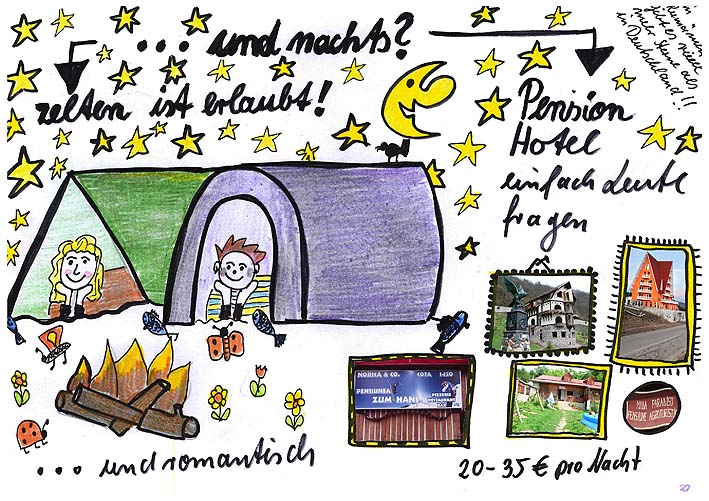 ... und nachts?
zelten ist erlaubt!
in Rumänien
gibt es viele
mehr Sterne als
in Deutschland!!
Pension
Hotel
einfach Leute
fragen
NORICA & CO. COTA 1420
PENSIUNEA
ZUM HANS
PIZZERIE
RESTAURANT
BAR
PARADISO
PENSIUNE AGROTURISTICA
... und romantisch
20-35 € pro Nacht